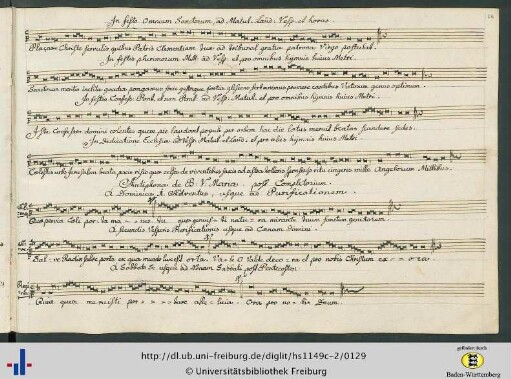 In festo Omnium Sanctorum ad Matut. Laud. Vesp. et horas.
Placare Christe servulis quibus Patris Clementiam tuae ad tribunal gratiae patrona Virgo postulat.
In festis plurimorum Mart. ad Vesp. et pro omnibus hymnis huius Metri.
Sanctorum meritis inclita gaudia pangamus socii gestaque fortia gliscens fert animus promere cantibus Victorum genus optimum.
In festis Confess. Pont. et non Pont. ad Vesp. Matut. et pro omnibus hymnis huius Metri.
Iste Confessor Domini colentes quem pie laudant populi per orbem hac die laetus meruit beatas scandere sedes.
In Dedicatione Ecclesiae ad Vesp. Matut. et Laud. et pro oibus hymnis huius Metri.
Caelestis urbs Jerusalem beata pacis visio quae celsa de viventibus saxis ad astra tolleris sponsaeque ritu cingeris mille Angelorum Millibus.
Antiphonae de B. V. Maria post Completorium.
A Dominica I. Adventus, usque ad Purificationem.
Quae pervia Coeli porta ma - - nes Tu quae genuisti natura mirante tuum sanctum genitorem
A secundis Vesperis Purificationis usque ad Caenam Domini.
Sal - ve Radix salve porta ex qua mundo lux est orta. Va - le O Valde deco - ra et pro nobis Christum ex - - o - ra.
A Sabbato S. usque ad Nonam Sabbati post Pentecosten.
Quia quem meruisti por - - - tare alle - luia. Ora pro no - bis Deum.
http://dl.ub.uni-freiburg.de/diglit/hs1149c-2/0129
© Universitätsbibliothek Freiburg
gefördert durch
Baden-Württemberg